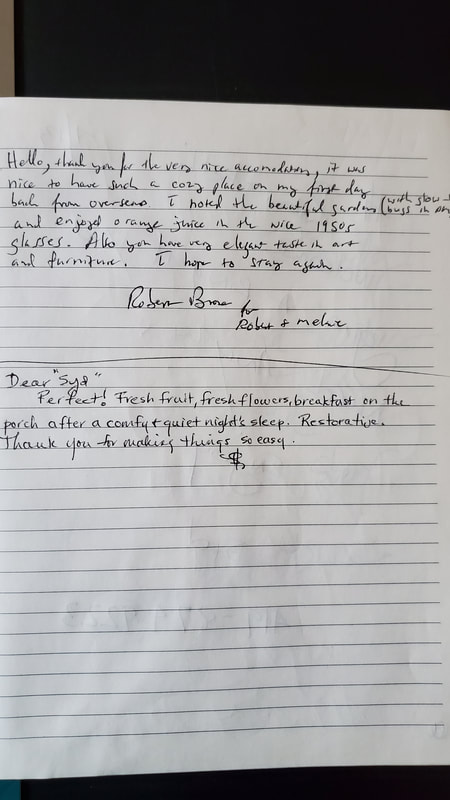 Hello, thank you for the very nice accomodations, it was
nice to have such a cozy place on my first day
back from overseas. I noted the beautiful gardens (with glow
bugs in
and enjoyed orange juice in the nice 1950s
glasses. Also you have very elegant taste in art
and furniture. I hope to stay again.
Robert
for
Robert &
Dear "Syd"
Perfect! Fresh fruit, fresh flowers, breakfast on the
porch after a comfy + quiet night's sleep. Restorative.
Thank you for making things so easy.